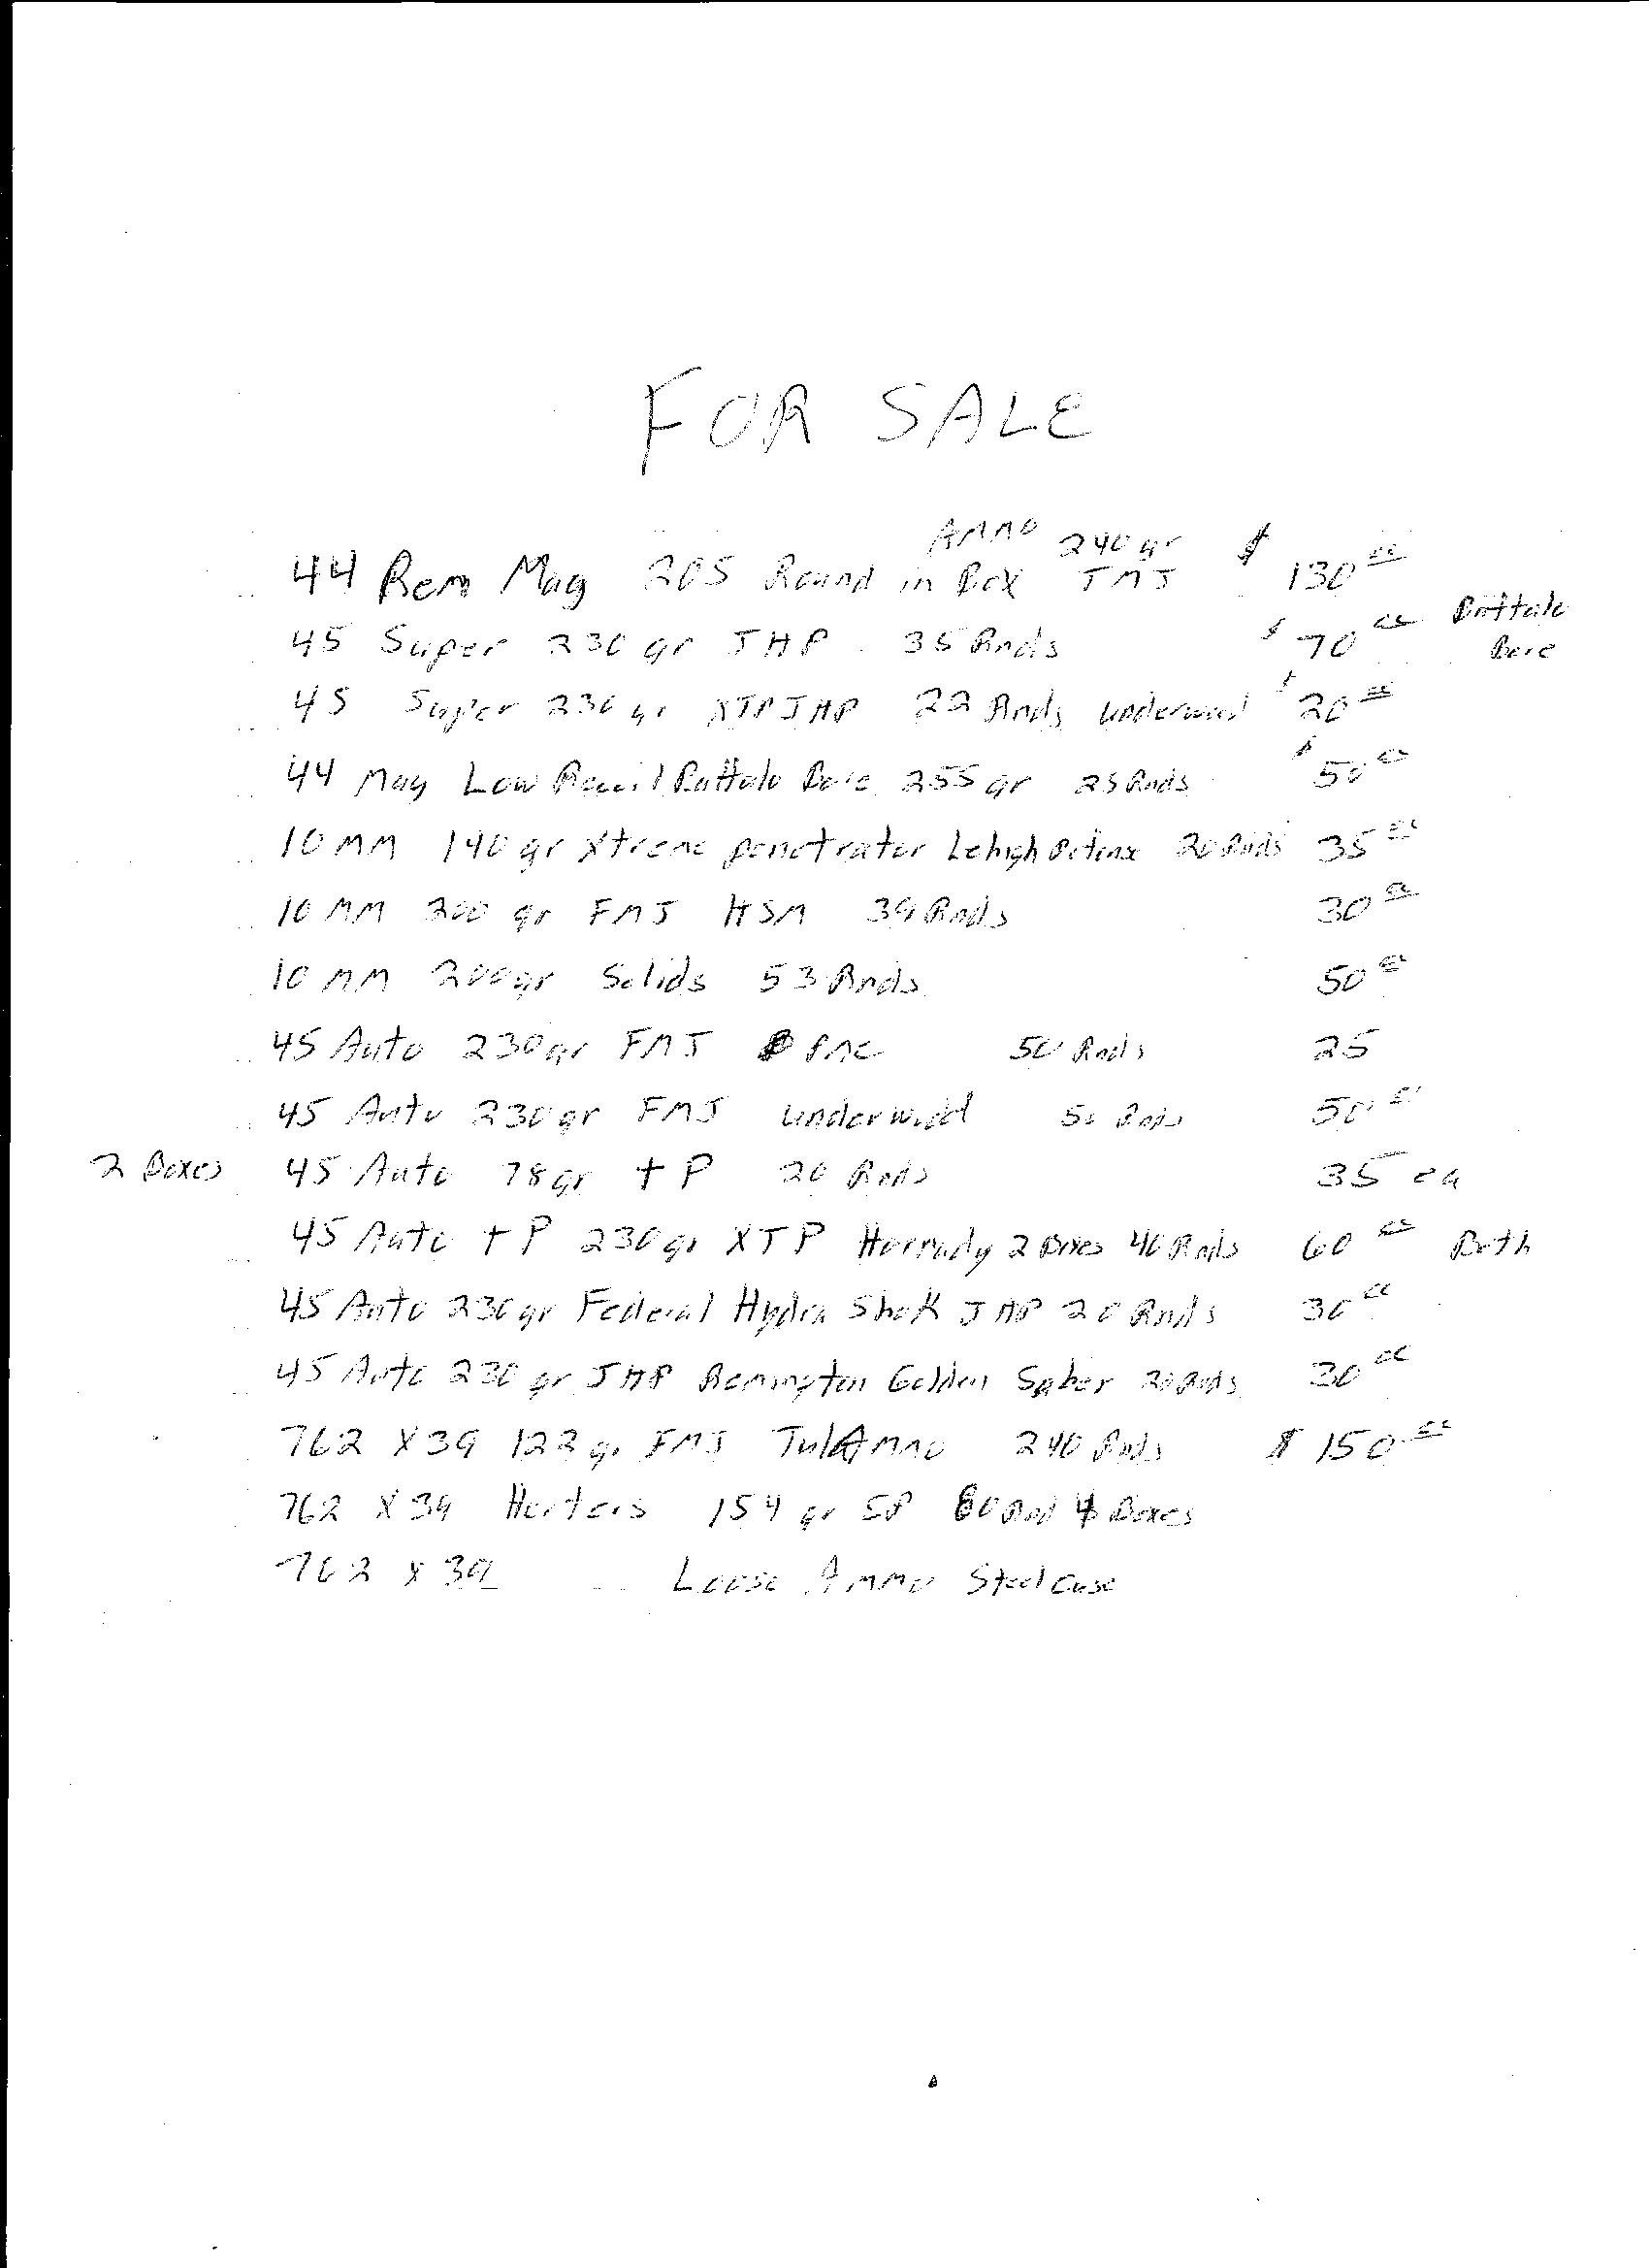 FOR SALE
44 Rem Mag 205 Round in Ammo Box 240 gr TMJ $ 130 00
45 Super 230 gr JHP 35 Rnds $ 70 00 Buffalo Bore
45 Super 230 gr XTP JHP 22 Rnds Underwood $ 20 00
44 Mag Low Recoil Buffalo Bore 255 gr 25 Rnds $ 50 00
10 MM 140 gr Xtreme penetrator Lehigh Defense 20 Rnds 35 00
10 MM 200 gr FMJ HSM 39 Rnds 30 00
10 MM 200 gr Solids 53 Rnds 50 00
45 Auto 230 gr FMJ PMC 50 Rnds 25
45 Auto 230 gr FMJ Underwood 50 Rnds 50 00
2 Boxes 45 Auto 78 gr + P 20 Rnds 35 ea
45 Auto + P 230 gr XTP Hornady 2 Boxes 40 Rnds 60 00 Both
45 Auto 230 gr Federal Hydra Shok JHP 20 Rnds 30 00
45 Auto 230 gr JHP Remington Golden Saber 20 Rnds 30 00
762 X 39 122 gr FMJ TulAmmo 240 Rnds $ 150 00
762 X 39 Herters 154 gr SP 80 Rnd 4 Boxes
762 X 39 Loose Ammo Steel Case